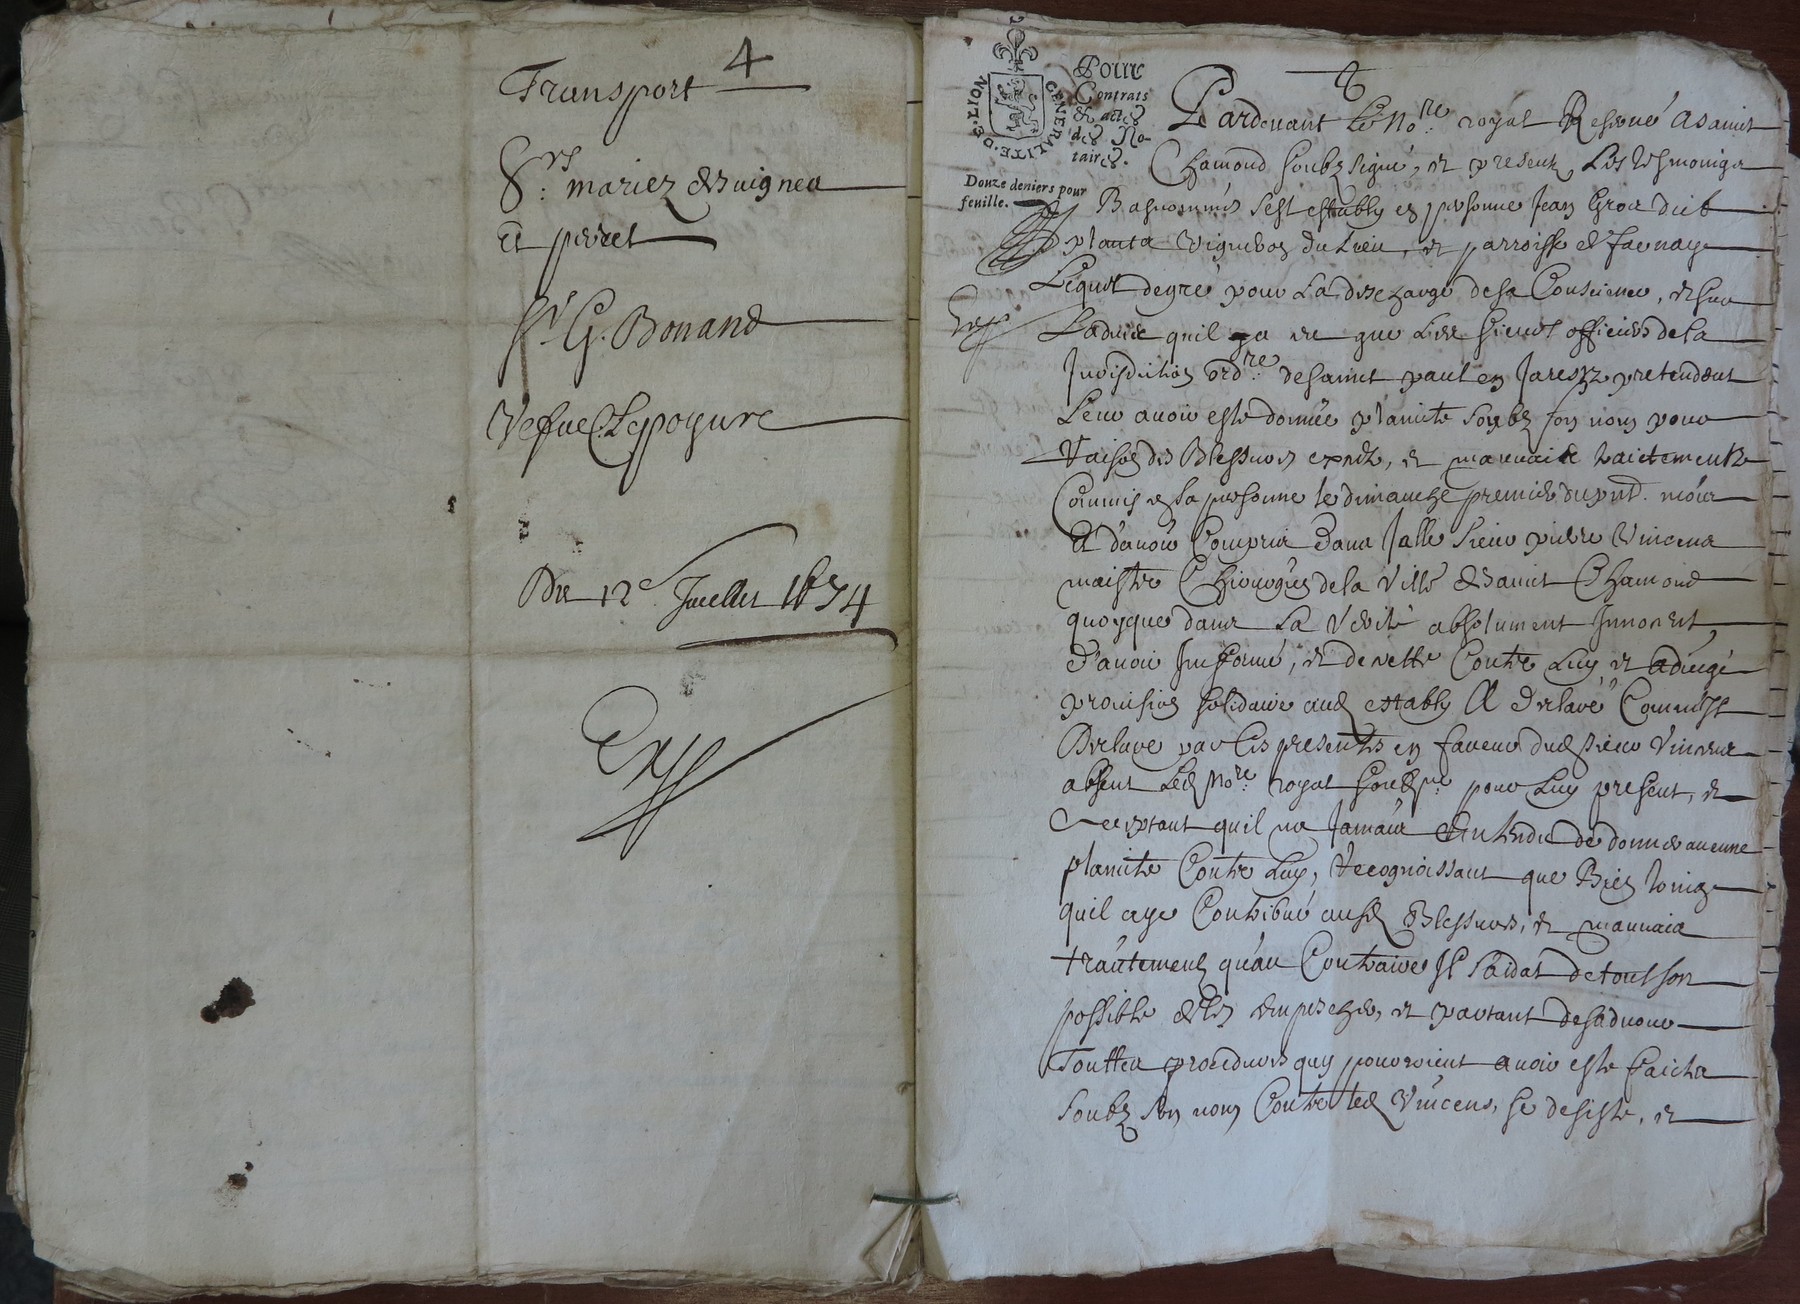 4
Transport
Srs mariez & vuignea
Et perret
Sr G. Bonand
Vefue Lepogure
Du 12e Juillet 1674
Exp
GENERALITE DE LION
Pour
Contrats
& actes
des No-
taires.
Douze deniers pour
feuille.
Pardeuant le Nore royal Reserué a saint
Chamond soubzsigné, et presentz Les tesmoings
Basnommés sest estably en personne Jean Gros dit
planta vigneron du Lieu, et parroisse de farnay
Exp
Lequel de gré pour La descharge de sa Conscience, et sur
Laduis quil a eu que Les sieurs officiers de la
Jurisdiction ordre de saint paul en Jarestz pretendent
Leur auoir esté donnée plainte soubz son nom pour
raison des Blessures, et mauuais traictementz
Commis en sa personne le dimanche premier du pnt mois
Et d'auoir Compris dans Jelle sieur pierre Vincens
maistre Chirurgien de la Ville de saint Chamond
quoyque dans La Verité absolument Innocent,
d'auoir Informé, et decretté Contre Luy, et adiugé
prouision solidaire aud estably A declaré Comme Il
Declare par Ces presentes en faueur dud sieur Vincens
absent Led Nore royal soubzne pour Luy present, et
acceptant quil na Jamais entendu de donner aucune
plainte Contre Luy, recognoissant que Bien loing
quil aye Contribué ausd Blessures, et mauuais
traitement qu'au Contraire Il saidat de tout son
possible de les empescher, et partant desaduoue
Touttes procedures quy pourroient auoir esté faictes
soubz son nom Contre led Vincens, se desiste, et